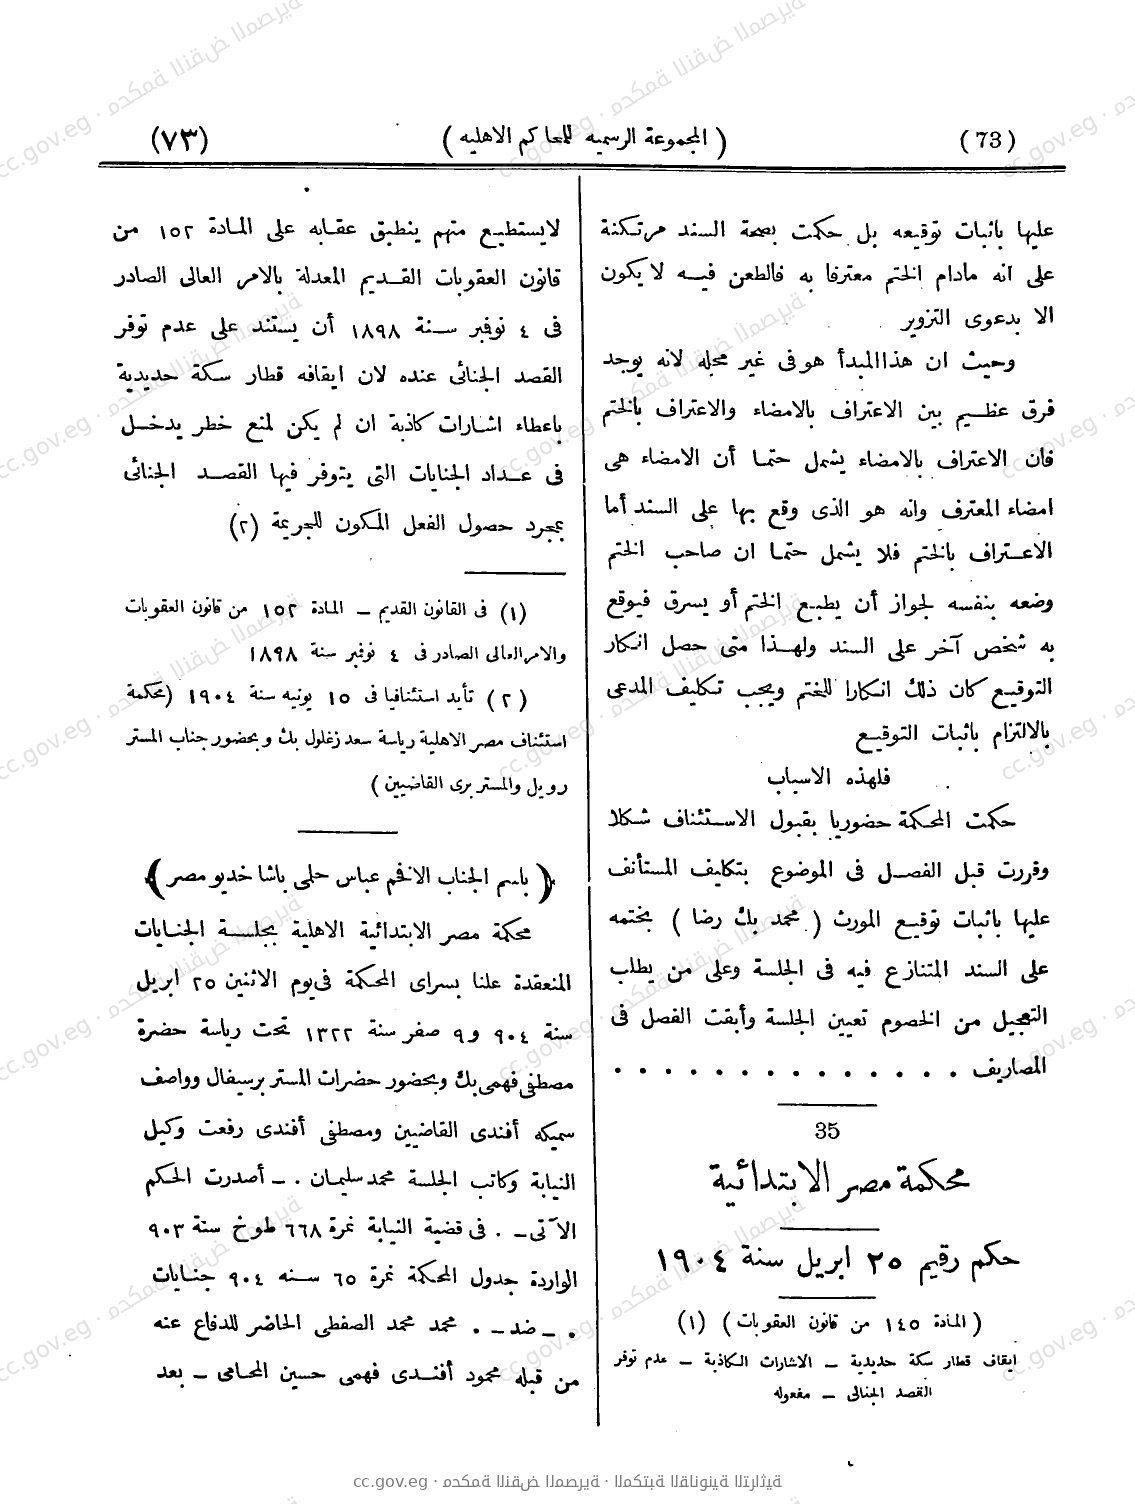 (73)
( المجموعة الرسميه للمحاكم الاهليه )
(٧٣)
عليها باثبات توقيعه بل حكمت بصحة السند مرتكنة
على انه مادام الختم معترفا به فالطعن فيه لا يكون
الا بدعوى التزوير
وحيث ان هذا المبدأ هو فى غير محله لانه يوجد
فرق عظيم بين الاعتراف بالامضاء والاعتراف بالختم
فان الاعتراف بالامضاء يشمل حتما أن الامضاء هى
امضاء المعترف وانه هو الذى وقع بها على السند أما
الاعتراف بالختم فلا يشمل حتما ان صاحب الختم
وضعه بنفسه لجواز أن يطبع الختم أو يسرق فيوقع
به شخص آخر على السند ولهذا متى حصل انكار
التوقيع كان ذلك انكارا للختم ويجب تكليف المدعى
بالالتزام باثبات التوقيع
فلهذه الاسباب
حكمت المحكمة حضوريا بقبول الاستئناف شكلا
وقررت قبل الفصل فى الموضوع بتكليف المستأنف
عليها باثبات توقيع المورث ( محمد بك رضا ) بختمه
على السند المتنازع فيه فى الجلسة وعلى من يطلب
التعجيل من الخصوم تعيين الجلسة وأبقت الفصل فى
المصاريف . . . . . . . . . . . . . .
35
محكمة مصر الابتدائية
حكم رقيم ٢٥ ابريل سنة ١٩٠٤
( المادة ١٤٥ من قانون العقوبات ) (١)
ايقاف قطار سكة حديدية – الاشارات الكاذبة – عدم توفر
القصد الجنائى – مفعوله
لايستطيع متهم ينطبق عقابه على المادة ١٥٢ من
قانون العقوبات القديم المعدلة بالامر العالى الصادر
فى ٤ نوفمبر سنة ١٨٩٨ أن يستند على عدم توفر
القصد الجنائى عنده لان ايقافه قطار سكة حديدية
باعطاء اشارات كاذبة ان لم يكن لمنع خطر يدخل
فى عداد الجنايات التى يتوفر فيها القصد الجنائى
بمجرد حصول الفعل المكون للجريمة (٢)
(١) فى القانون القديم – المادة ١٥٢ من قانون العقوبات
والامر العالى الصادر فى ٤ نوفمبر سنة ١٨٩٨
( ٢ ) تأيد استئنافيا فى ١٥ يونيه سنة ١٩٠٤ (محكمة
استئناف مصر الاهلية رياسة سعد زغلول بك و بحضور جناب المستر
رويل والمستر برى القاضيين )
﴿ باسم الجناب الافخم عباس حلمى باشا خديو مصر ﴾
محكمة مصر الابتدائية الاهلية بجلسة الجنايات
المنعقدة علنا بسراى المحكمة فى يوم الاثنين ٢٥ ابريل
سنة ٩٠٤ و ٩ صفر سنة ١٣٢٢ تحت رياسة حضرة
مصطفى فهمى بك وبحضور حضرات المستر برسيفال وواصف
سميكه أفندى القاضيين ومصطفى أفندى رفعت وكيل
النيابة وكاتب الجلسة محمد سليمان . – أصدرت الحكم
الآتى – . فى قضية النيابة نمرة ٦٦٨ طوخ سنة ٩٠٣
الواردة جدول المحكمة نمرة ٦٥ سنه ٩٠٤ جنايات
. – ضد – . محمد محمد الصفطى الحاضر للدفاع عنه
من قبله محمود أفندى فهمى حسين المحامى – بعد
cc.gov.eg · محكمة النقض المصرية · المكتبة القانونية التراثية